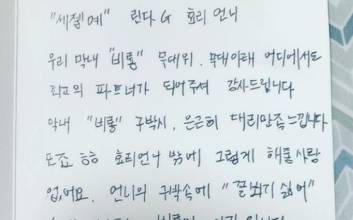 "세젤예" 린다G 효리 언니
우리 막내 "비룡" 무대위, 무대아래 어디에서도
최고의 파트너가 되어주셔 감사드립니다
막내 "비룡" 구박시, 은근히 대리만족 느낍니다
또죠 ㅎㅎ 효리언니 밖에 그렇게 해줄 사람
없어요. 언니의 구박속에 "꼴보기 싫어"